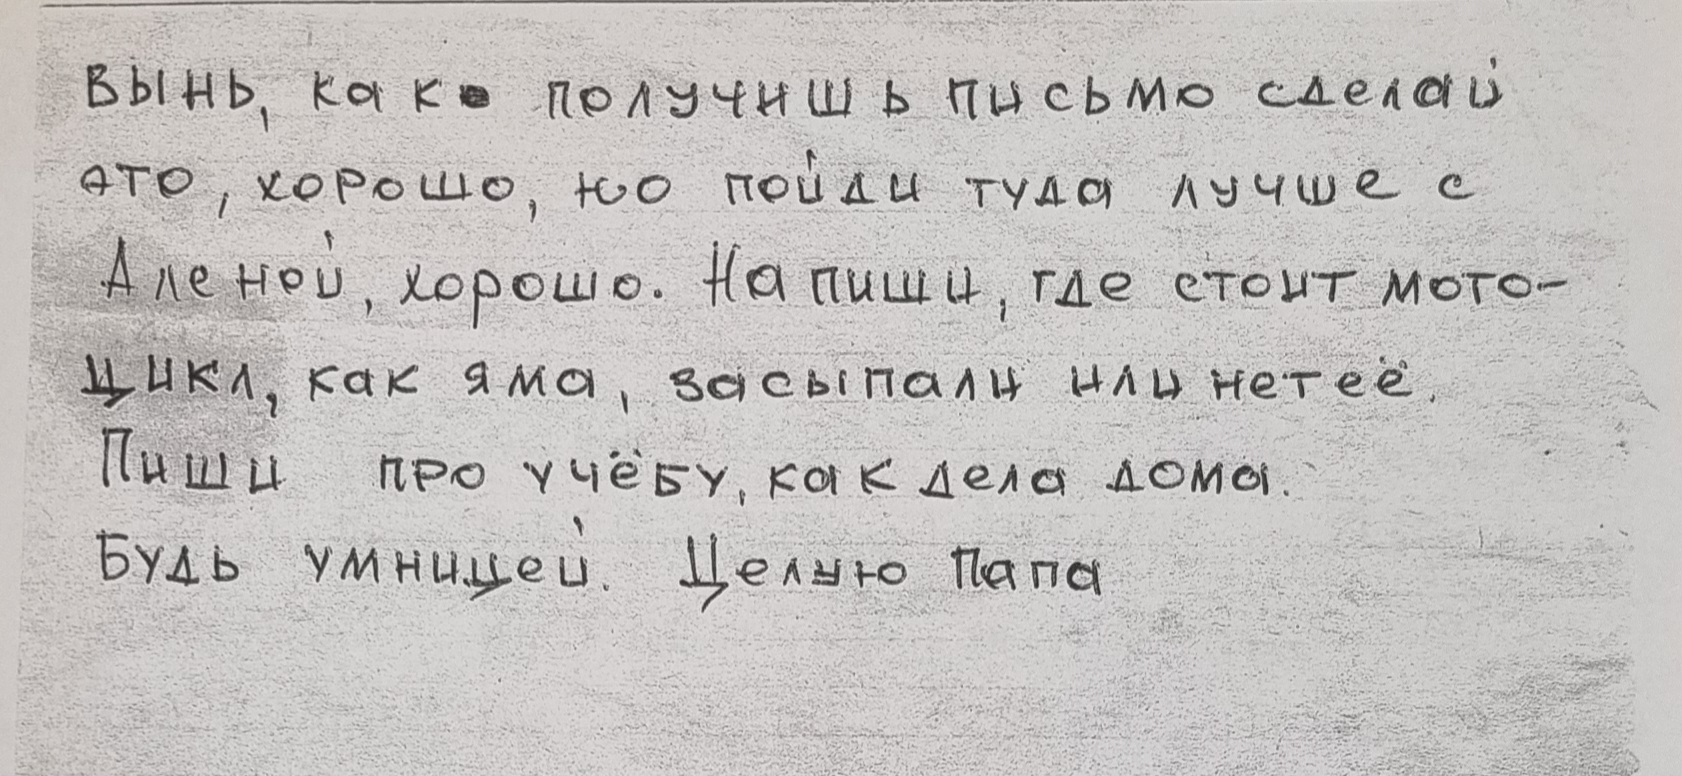 Вынь, как получишь письмо сделай
это, хорошо, но пойди туда лучше с
Аленой, хорошо. Напиши, где стоит мото-
цикл, как яма, засыпали или нет её.
Пиши про учёбу, как дела дома.
Будь умницей. Целую Папа